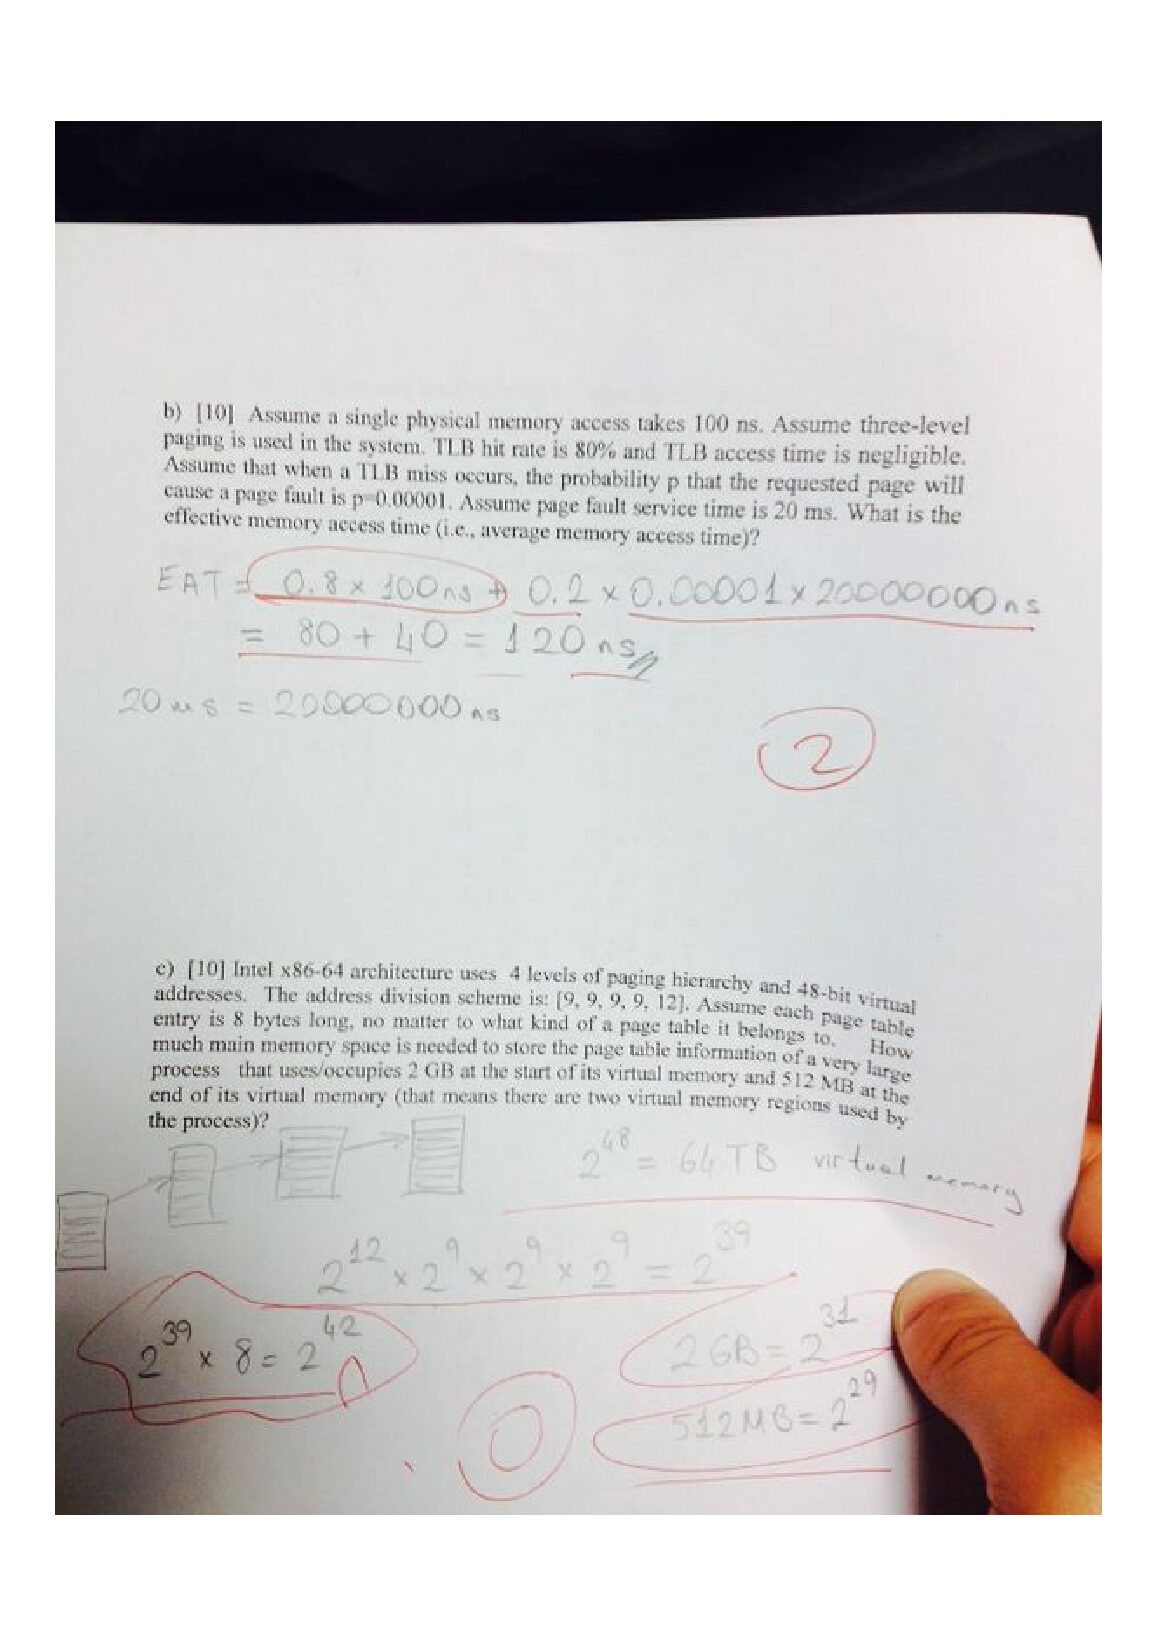 b) [10] Assume a single physical memory access takes 100 ns. Assume three-level
paging is used in the system. TLB hit rate is 80% and TLB access time is negligible.
Assume that when a TLB miss occurs, the probability p that the requested page will
cause a page fault is p=0.00001. Assume page fault service time is 20 ms. What is the
effective memory access time (i.e., average memory access time)?
EAT = 0.8 x 100ns + 0.2 x 0.00001 x 20000000ns
= 80 + 40 = 120 ns
20 ms = 20000000 ns
2
c) [10] Intel x86-64 architecture uses 4 levels of paging hierarchy and 48-bit virtual
addresses. The address division scheme is: [9, 9, 9, 9, 12]. Assume each page table
entry is 8 bytes long, no matter to what kind of a page table it belongs to. How
much main memory space is needed to store the page table information of a very large
process that uses/occupies 2 GB at the start of its virtual memory and 512 MB at the
end of its virtual memory (that means there are two virtual memory regions used by
the process)?
2^48 = 64 TB virtual memory
2^12 x 2^9 x 2^9 x 2^9 = 2^39
2^39 x 8 = 2^42
2GB = 2^31
512MB = 2^29
0